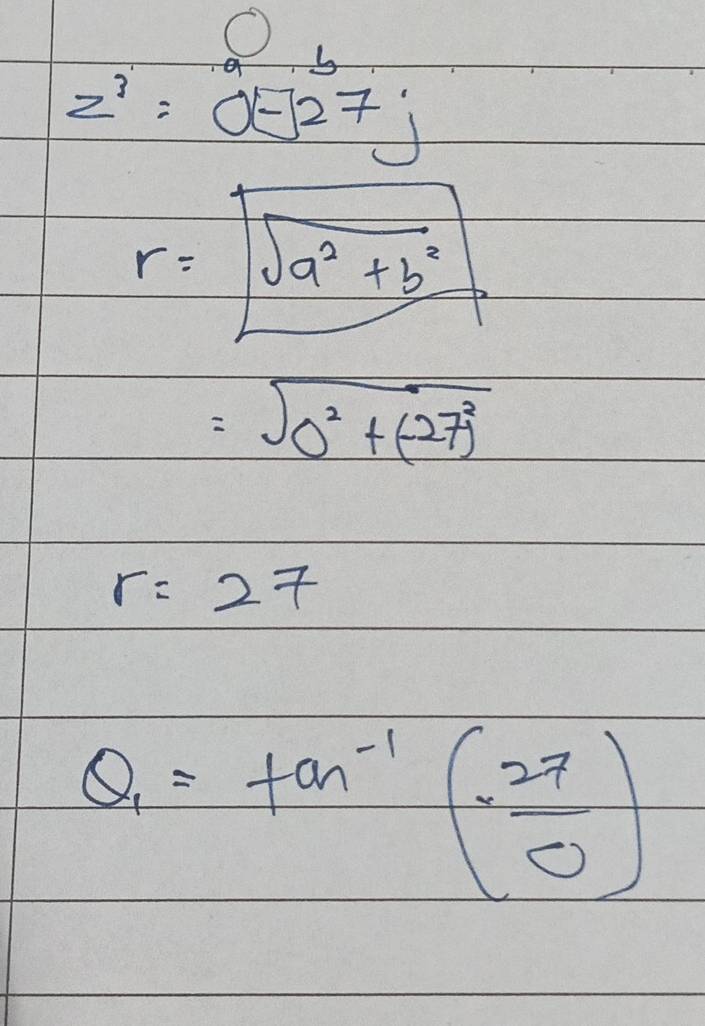 a b
z³ = 0 - 27j
r = √(a² + b²)
= √(0² + (-27)²)
r = 27
θ₁ = tan⁻¹ (-27/0)